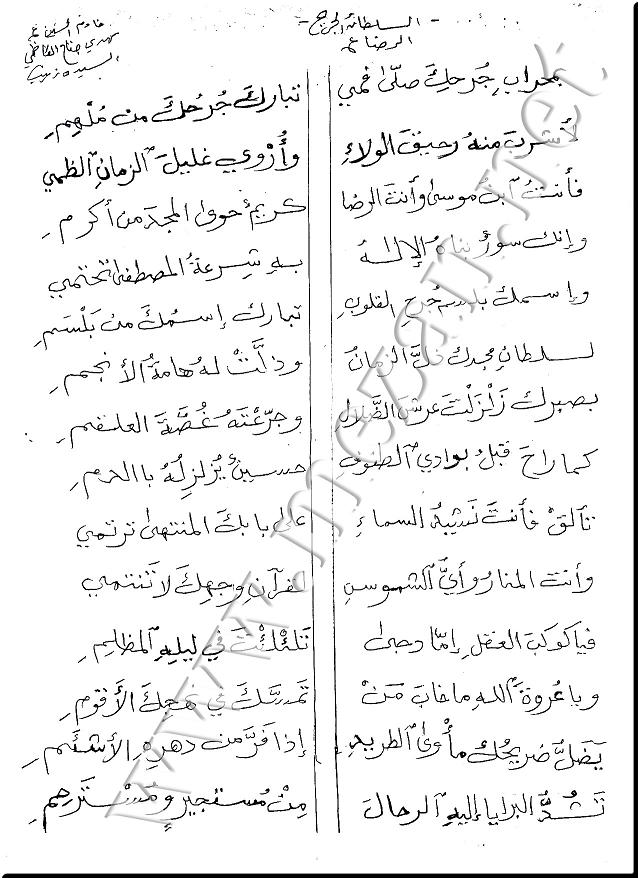 - السلطان الجريح -
الرضا ع
خادم الحسين ع
مهدي جناح الكاظمي
السيدة زينب
بمحرابِ جُرحكَ صلّى فمي تباركَ جُرحُكَ من مُلْهِمِ
لأشربَ منهُ رحيقَ الولاءِ وأُرْوي غليلَ الزمانِ الظمي
فأنتَ ابنُ موسى وأنتَ الرضا كريمٌ حوى المجدَ من أكرمِ
وإنك سورٌ بناهُ الإلهُ بهِ شِرعةُ المصطفى تحتمي
وإسمكَ بلسم جُرحِ القلوبِ تباركَ إسمُكَ من بَلْسَمِ
لسلطانِ مجدكَ ذلَّ الزمانُ وذلَّتْ لهُ هامةُ الأنجمِ
بصبرك زَلْزَلْتَ عرشَ الضَّلالِ وجرّعْتَهُ غُصَّةَ العلقمِ
كما راحَ قبلُ بوادي الطفوفِ حسينٌ يُزلزِلُهُ باالدمِ
تألقْ فأنتَ نَشيدُ السماءِ على بابكَ المنتهى ترتمي
وأنت المنارُ وأيُّ الشموسِ لقرآنِ وجهكَ لا تنتمي
فيا كوكبَ العقلِ إمّا دجى تلألأتَ في ليلهِ المظلمِ
ويا عُروةَ اللهِ ما خابَ مَنْ تمسَّكَ في نهجِكَ الأقومِ
يَضَلُّ ضريحُكَ مأْوى الطريدِ إذا فرَّ من دهرِهِ الأشئمِ
تَشُدُّ البرايا إليهِ الرحالَ مِنْ مُستجيرٍ ومُسْتَرحِمِ
www.mezan.net